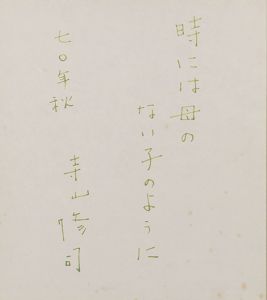 時には母の
ない子のように
七〇年秋
寺山修司